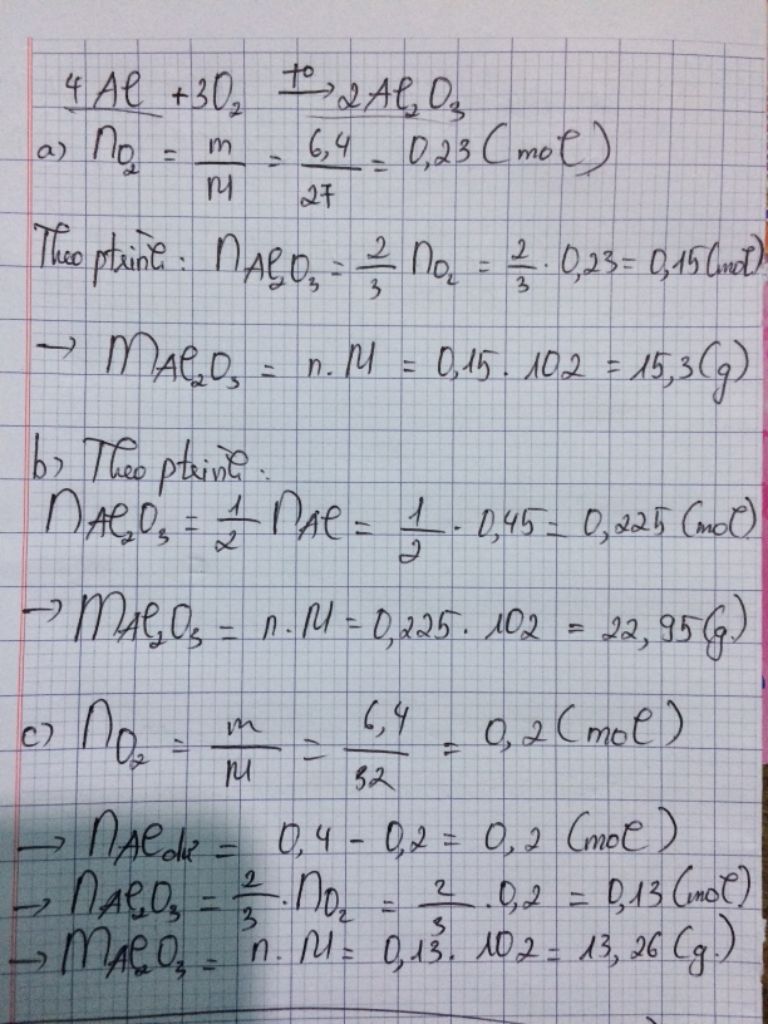 4Al + 3O₂ —t°→ 2Al₂O₃
a) nO₂ = m/M = 6,4/27 = 0,23 (mol)
Theo ptrình: nAl₂O₃ = 2/3 nO₂ = 2/3 . 0,23 = 0,15 (mol)
→ mAl₂O₃ = n.M = 0,15 . 102 = 15,3 (g)
b) Theo ptrình:
nAl₂O₃ = 1/2 nAl = 1/2 . 0,45 = 0,225 (mol)
→ mAl₂O₃ = n.M = 0,225 . 102 = 22,95 (g)
c) nO₂ = m/M = 6,4/32 = 0,2 (mol)
→ nAl dư = 0,4 - 0,2 = 0,2 (mol)
→ nAl₂O₃ = 2/3 . nO₂ = 2/3 . 0,2 = 0,13 (mol)
→ mAl₂O₃ = n.M = 0,13 . 102 = 13,26 (g)